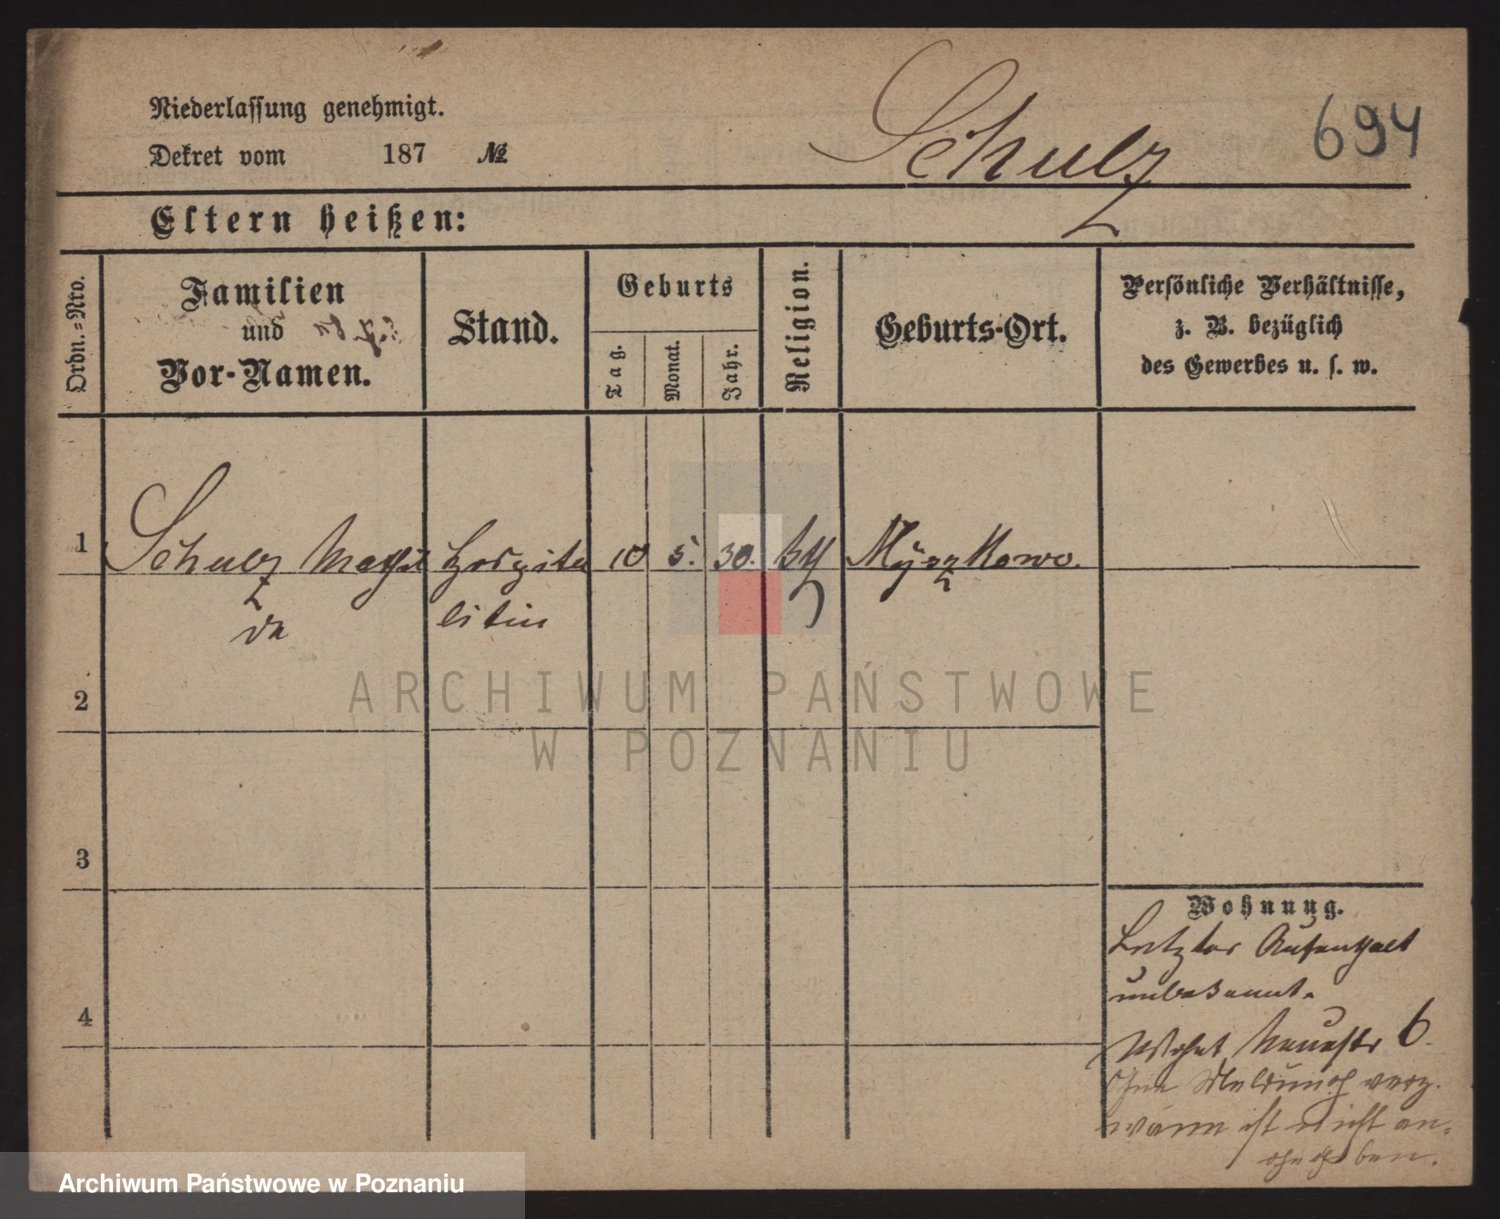 Niederlassung genehmigt.
Dekret vom 187 №
Schulz
694
Eltern heißen:
Ordn.=Nro.
Familien
und
Vor-Namen.
Stand.
Geburts
Tag.
Monat.
Jahr.
Religion.
Geburts-Ort.
Persönliche Verhältnisse,
z. B. bezüglich
des Gewerbes u. s. w.
1 Schulz Mathil Hospita 10 5. 30.
da litin
2
3
4
Wohnung.
Letzter Aufenthalt
unbekannt.
Wohnt Neuestr 6
Ohne Meldung verz.
wann ist nicht an=
ben.
ARCHIWUM PAŃSTWOWE
W POZNANIU
Archiwum Państwowe w Poznaniu